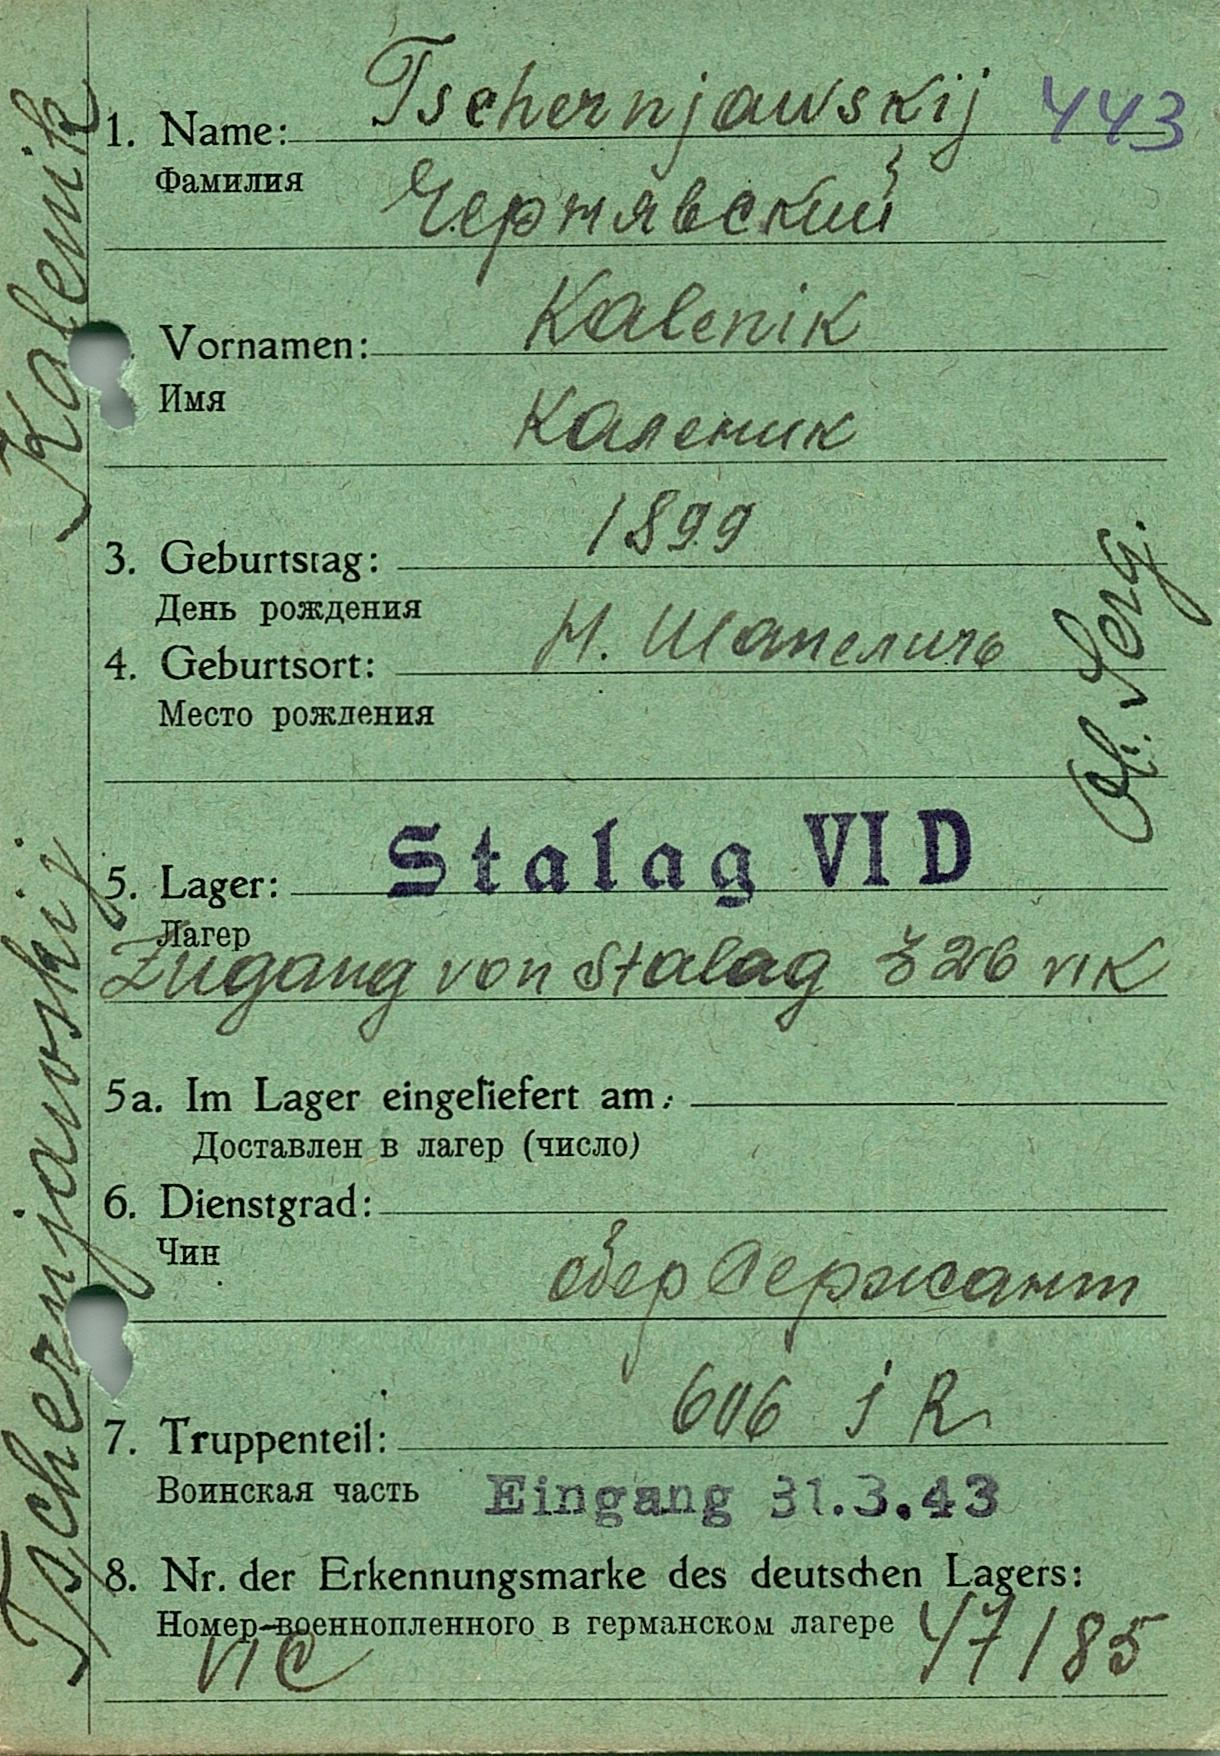 Tschernjawskij 443
1. Name:
Фамилия
Чернявский
Kalenik
Vornamen:
Имя
Каленик
1899
3. Geburtstag:
День рождения
4. Geburtsort: Н. Шапеличь
Место рождения
Stalag VI D
5. Lager:
Лагер
Zugang von Stalag 326 VIK
5a. Im Lager eingeliefert am:
Доставлен в лагер (число)
6. Dienstgrad:
Чин
обер Сержант
606 J R
7. Truppenteil:
Воинская часть
Eingang 31.3.43
8. Nr. der Erkennungsmarke des deutschen Lagers:
Номер военнопленного в германском лагере
VI C 47185
Tschernjawskij Kalenik